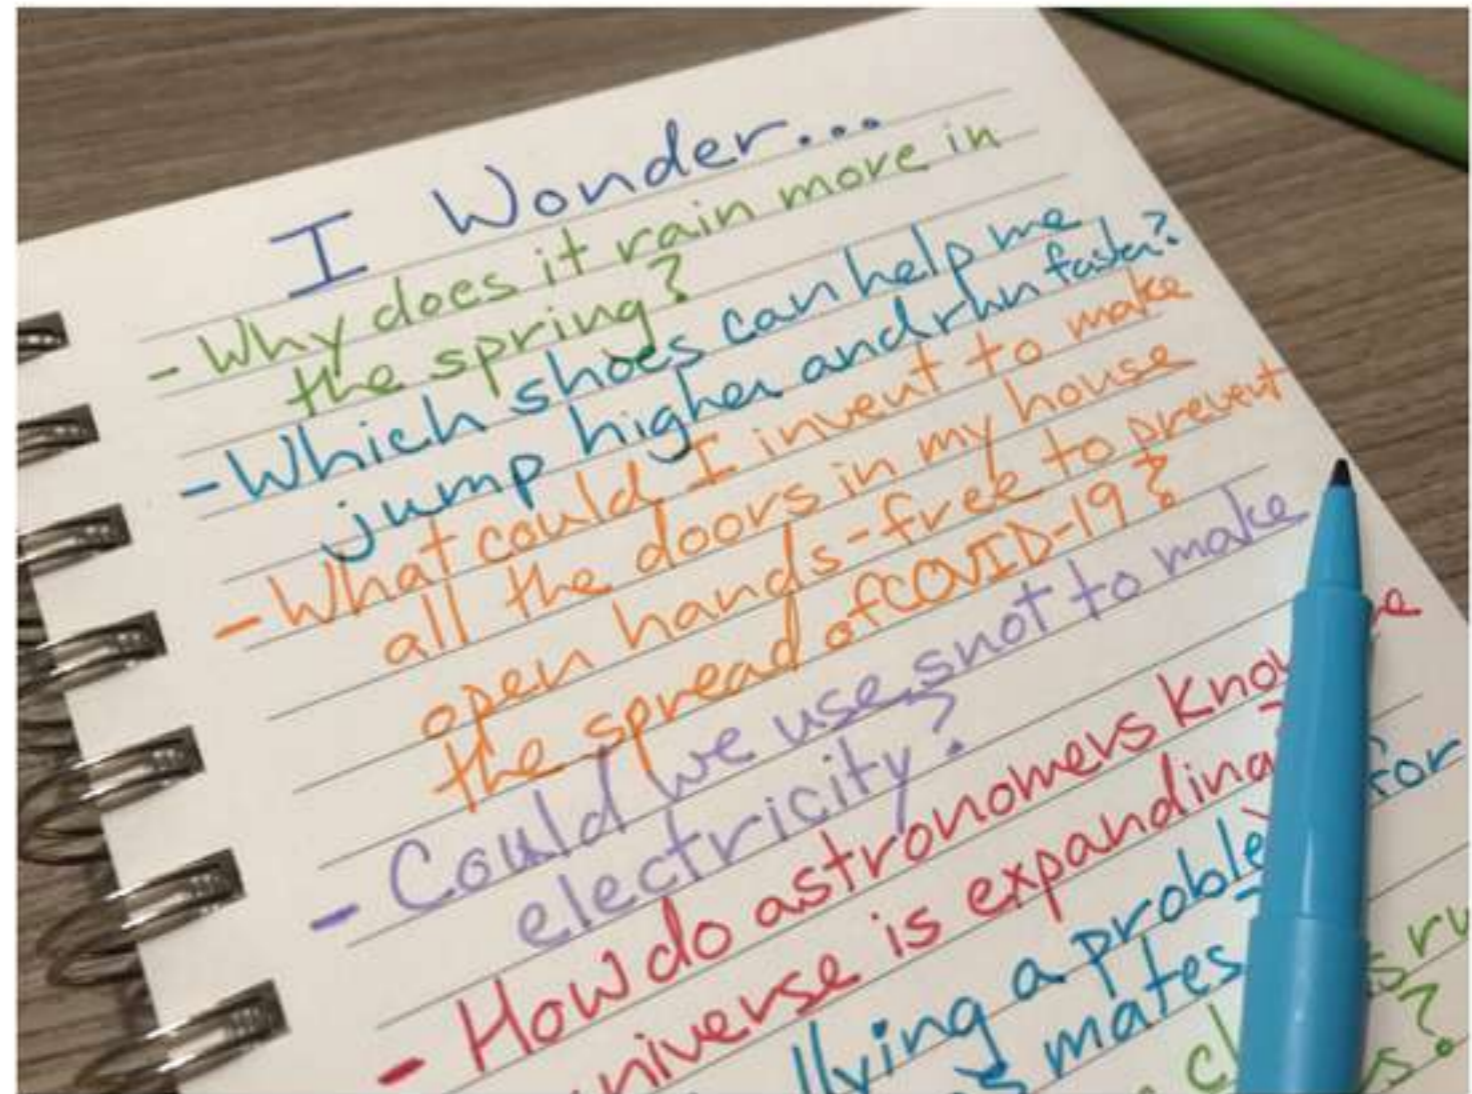 I Wonder...
- Why does it rain more in
the spring?
- Which shoes can help me
jump higher and run faster?
- What could I invent to make
all the doors in my house
open hands-free to prevent
the spread of COVID-19?
- Could we use snot to make
electricity?
- How do astronomers
is expanding
a for
mates